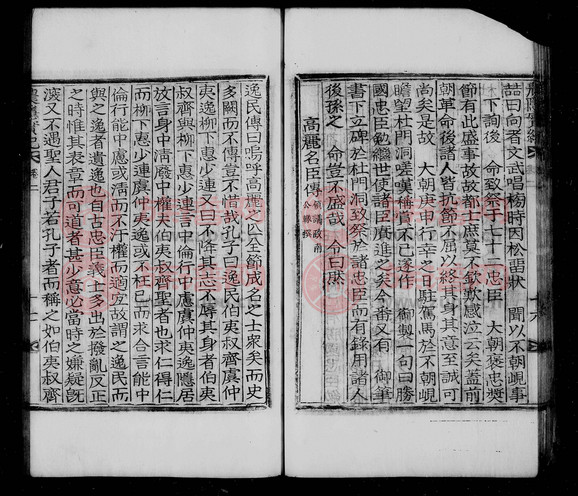 詰曰向者文武唱楊時因松留狀 聞以不朝峴事
下詢後 命致祭于七十二忠臣 大朝褒忠獎
節有此盛事故故都士庶莫不欽歎感泣云矣蓋前
朝革命後諸人皆抗節不屈以終其身其意至誠可
尚矣是故 大朝庚申行幸之日駐駕馬於不朝峴
瞻望杜門洞嗟嘆稱賞不已遂作 御製一句曰勝
國忠臣勉繼世使諸臣賡進之矣今番又有 御筆
書下立碑於杜門洞致祭於諸忠臣而有錄用諸人
後孫之 命豈不盛哉 今曰庶
高麗名臣傳
公轍撰
逸民傳曰嗚呼高麗之亾全節成名之士衆矣而史
多闕而不傳豈不惜哉孔子曰逸民伯夷叔齊虞仲
夷逸柳下惠少連又曰不降其志不辱其身者伯夷
叔齊與柳下惠少連言中倫行中慮虞仲夷逸隱居
放言身中淸廢中權夫伯夷叔齊聖者也求仁得仁
而柳下惠少連虞仲夷逸或不枉已而求合言能中
倫行能中慮或淸而不汙權而適方故謂之逸民而
與之逸者遺逸也自古忠臣義士多出於撥亂反正
之時惟其表章而可道者甚少意必當時之嫌疑旣
深又不遇聖人君子若孔子者而稱之如伯夷叔齊